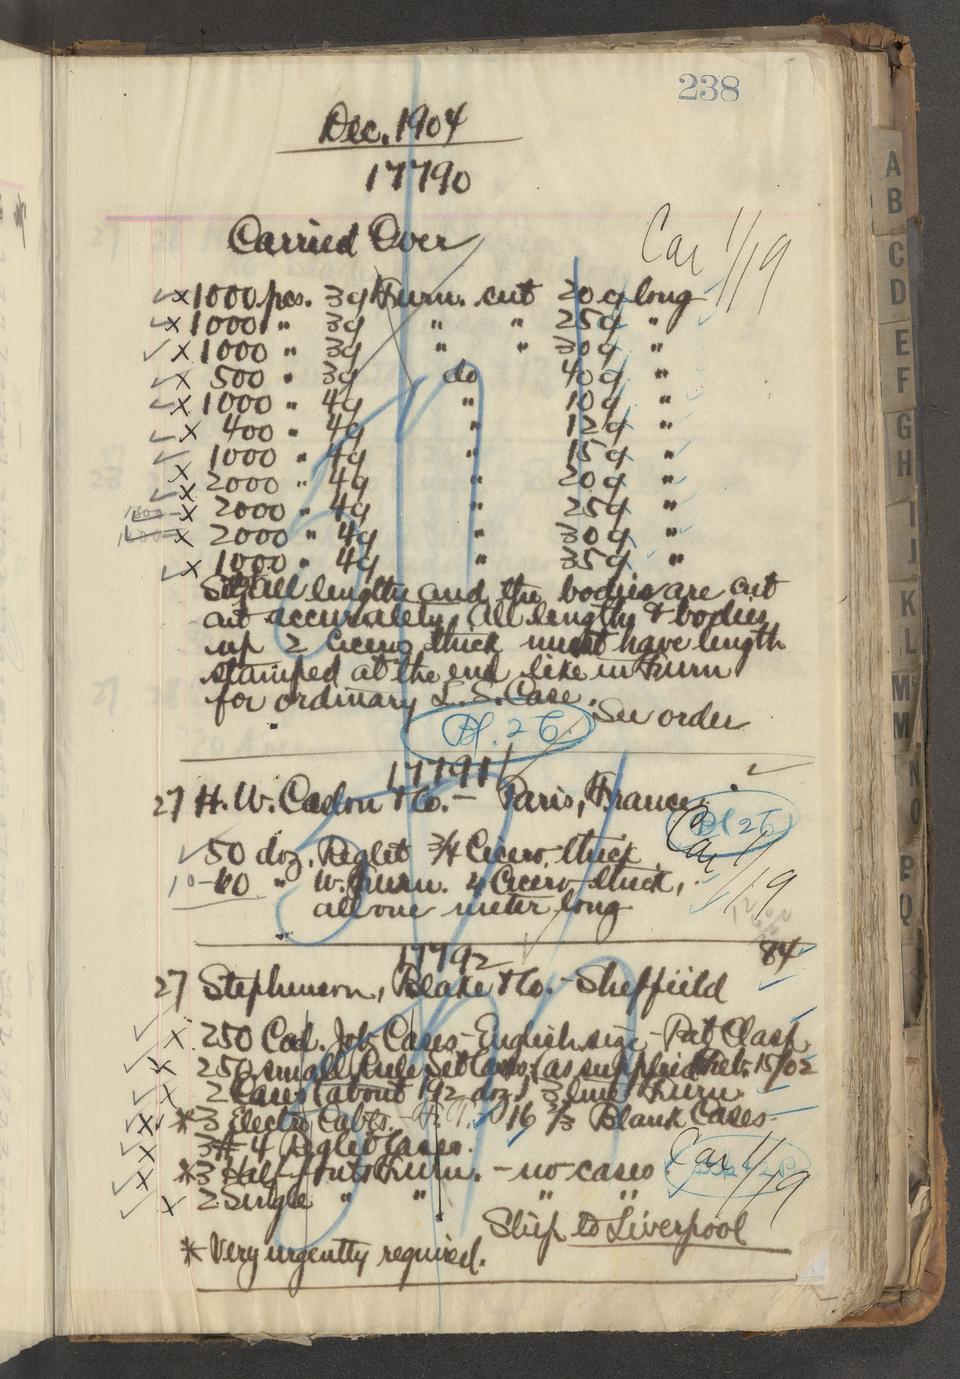 238
Dec. 1904
17790
Carried Over
Car 1/19
1000 pcs. 3g Furn. cut 20g long
1000 " 3g " " 25g "
1000 " 3g " " 30g "
500 " 3g do 40g "
1000 " 4g " 10g "
400 " 4g " 12g "
1000 " 4g " 15g "
2000 " 4g " 20g "
2000 " 4g " 25g "
2000 " 4g " 30g "
1000 " 4g " 35g "
all lengths and the bodies are cut
accurately. All lengths & bodies
up 2 Cicero thick must have length
stamped at the end like in Furn
for ordinary L. S. Case.
See order
17791
27 H. W. Caslon & Co. - Paris, France.
Car 1/19
50 doz. Reglet 3/4 Cicero thick
10 - 60 " W. Furn. 4 Cicero thick,
all one meter long
17792
84
27 Stephenson, Blake & Co. - Sheffield
250 Cal. Job Cases - English size - Pat Clasp
250 small Rule Set Cases (as supplied Feb. 15/02
2 Cases (about 192 doz.) 3 line Furn.
* 3 Electro Cabts. 16 2/3 Blank Cases
4 Reglet Cases.
* 3 Half Furn. - no cases
Car 1/19
2 Single " " " "
Ship to Liverpool
* Very urgently required.
A
B
C
D
E
F
G
H
I
J
K
L
Mc
M
N
O
P
Q